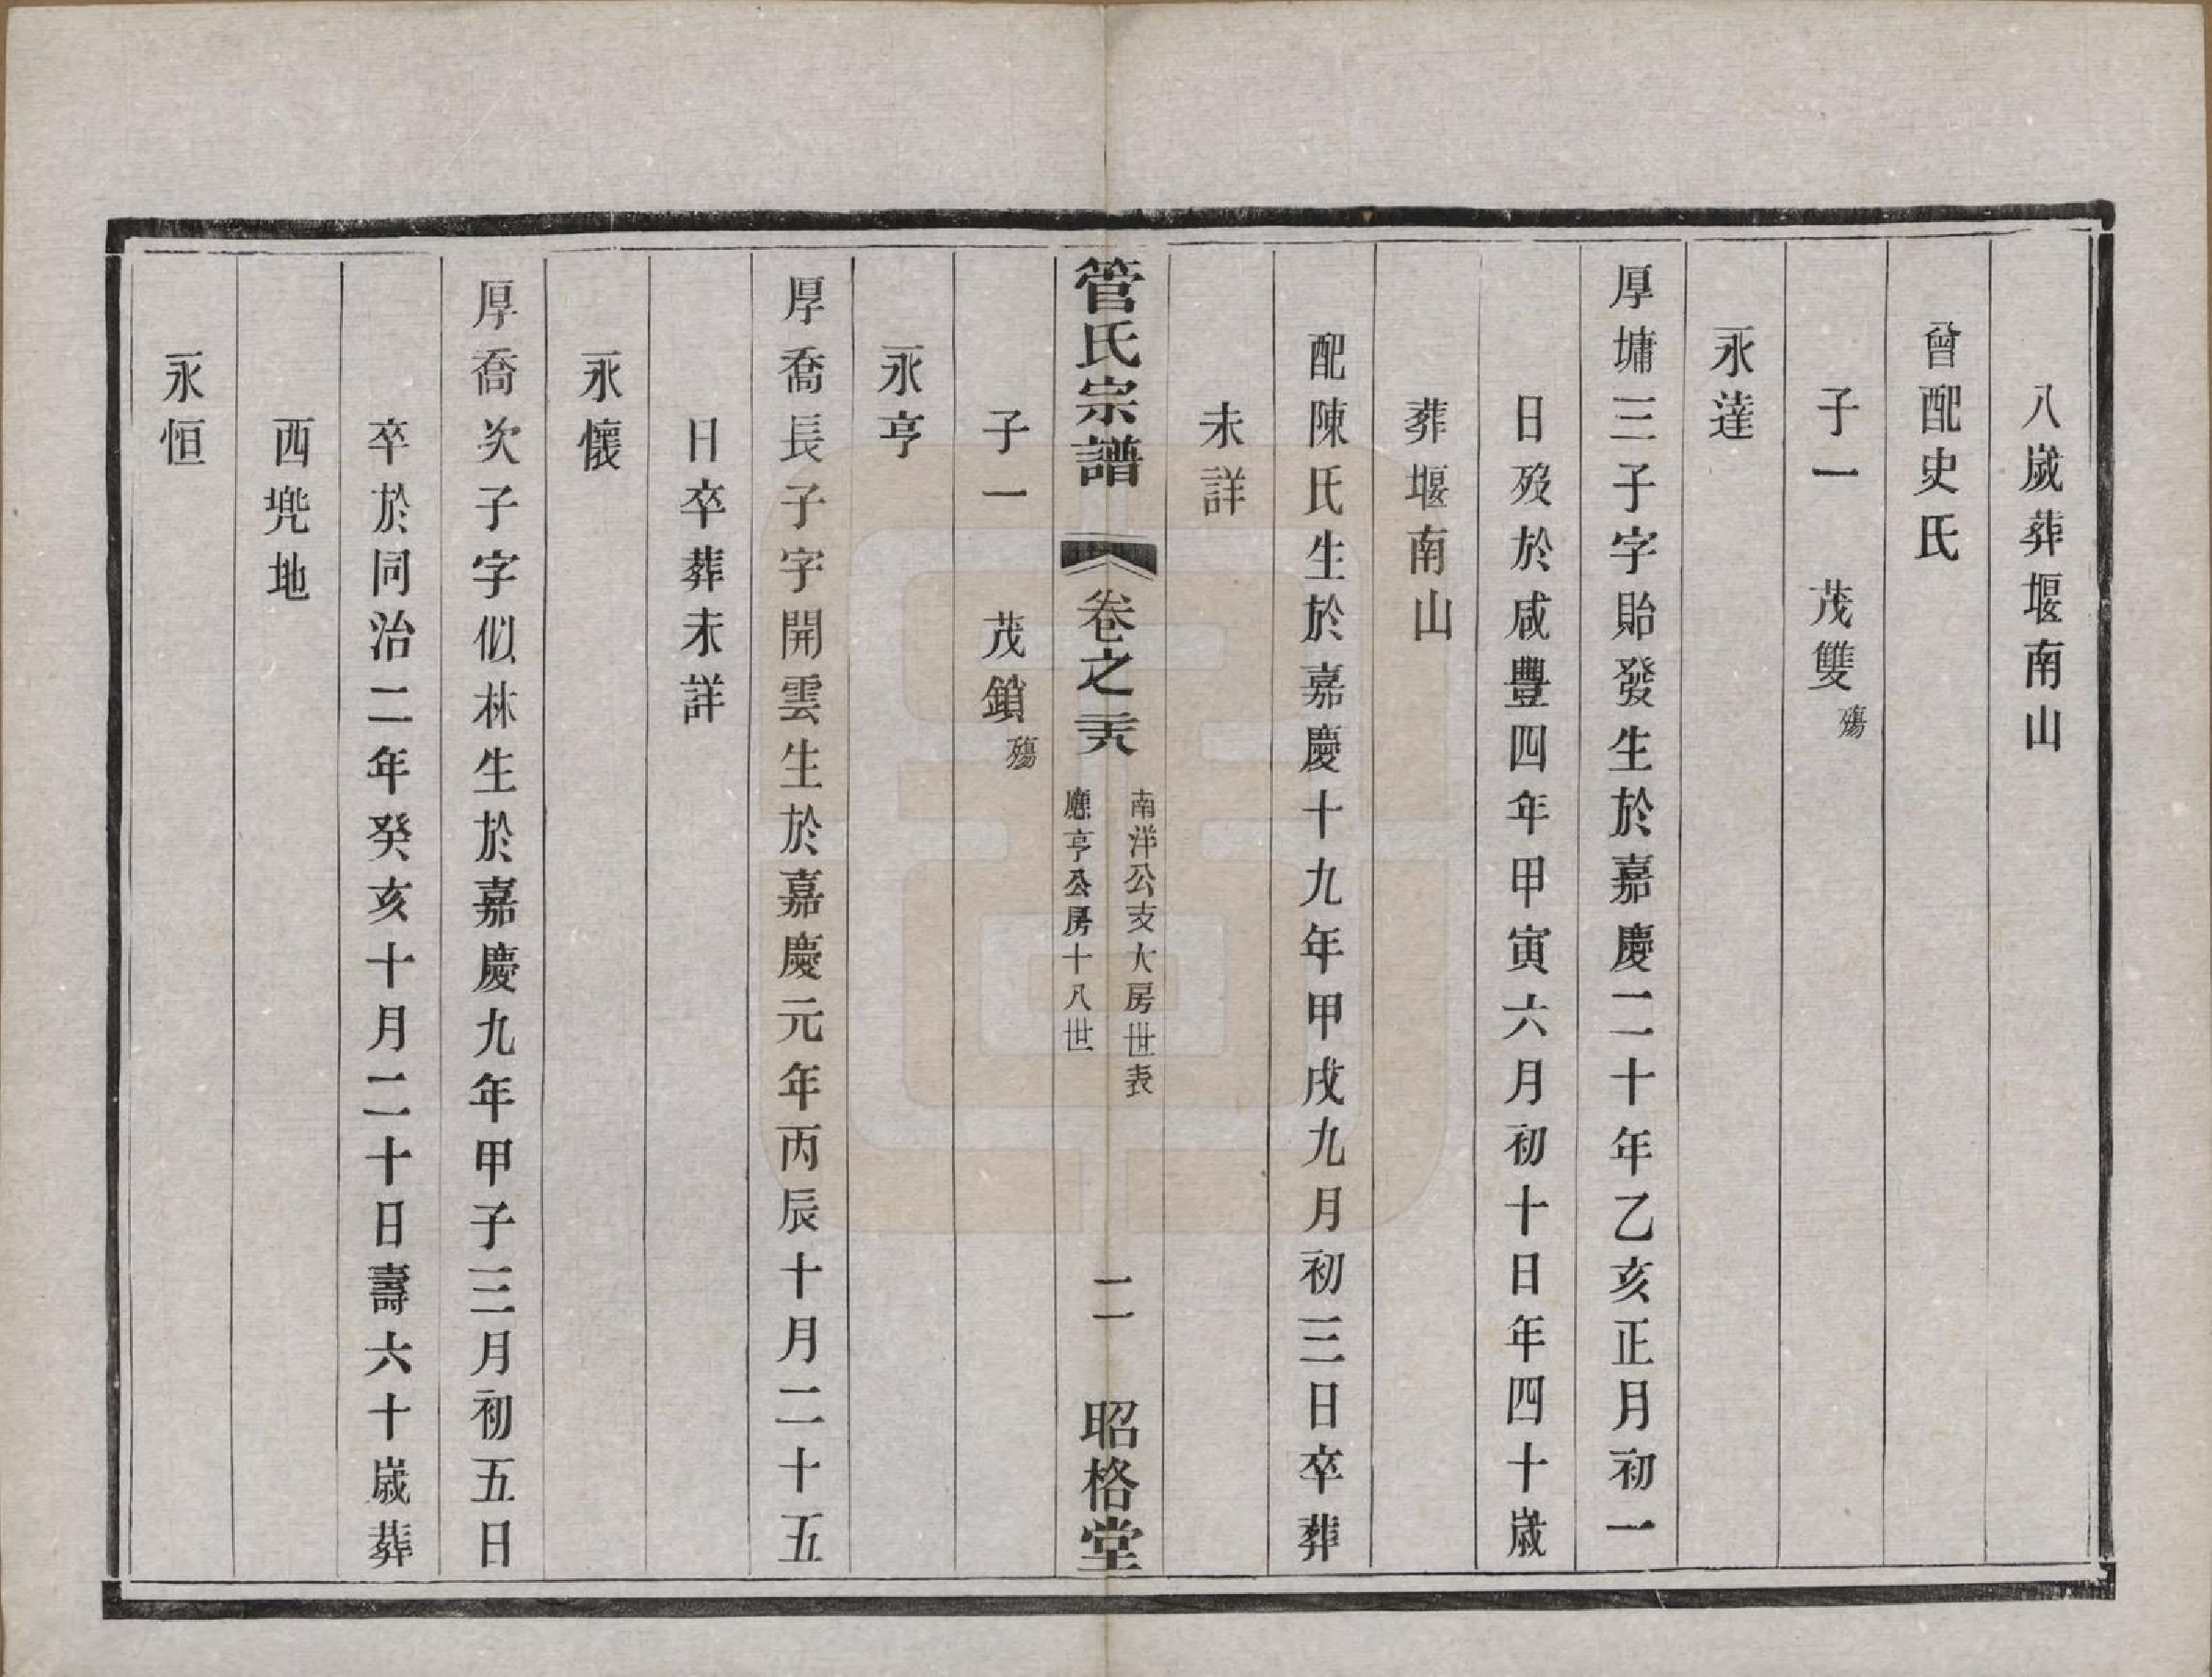 八歲葬堰南山
曾配史氏
子一　茂雙殤
永達
厚墉三子字貽發生於嘉慶二十年乙亥正月初一
日歿於咸豐四年甲寅六月初十日年四十歲
葬堰南山
配陳氏生於嘉慶十九年甲戌九月初三日卒葬
未詳
管氏宗譜　卷之二六　南洋公支大房世表　應亨公房十八世　二　昭格堂
子一　茂鎖殤
永亨
厚喬長子字開雲生於嘉慶元年丙辰十月二十五
日卒葬未詳
永懷
厚喬次子字似林生於嘉慶九年甲子三月初五日
卒於同治二年癸亥十月二十日壽六十歲葬
西兠地
永恒